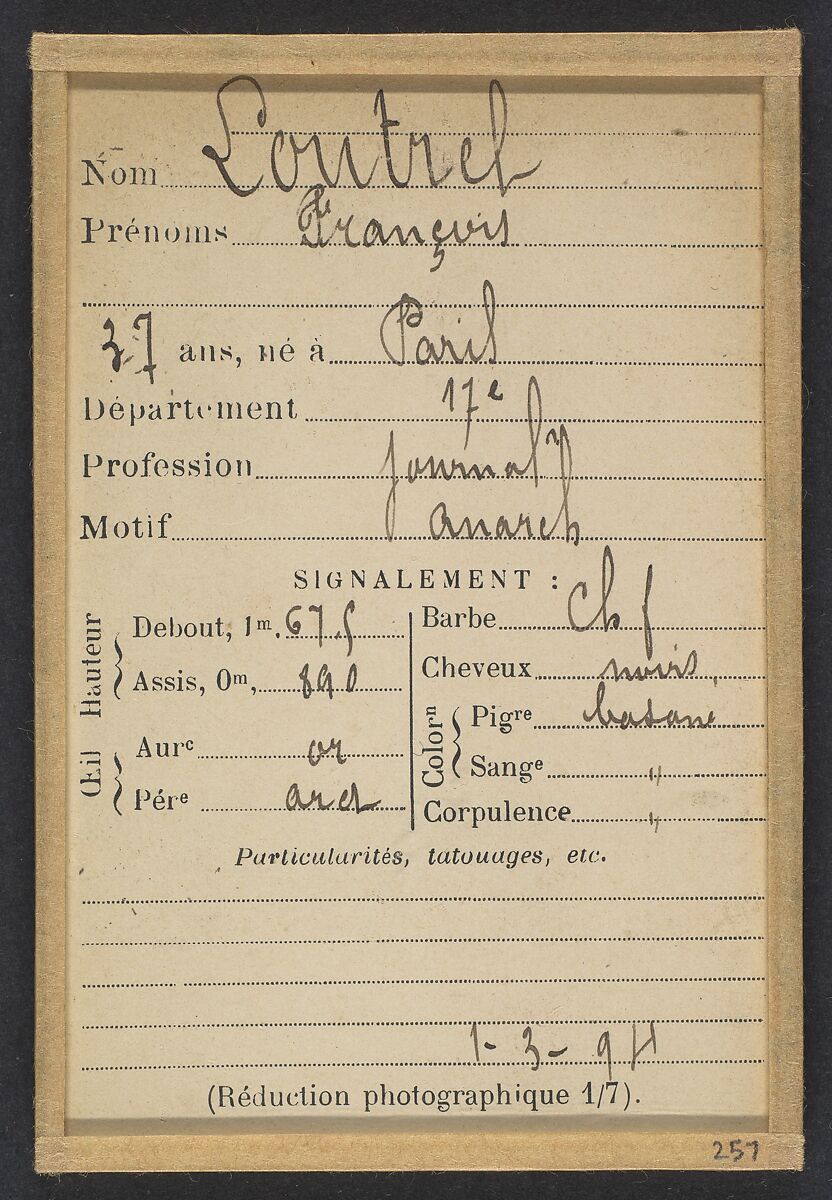 Nom Loutrel
Prénoms François
37 ans, né à Paris
Département 17e
Profession Journalr
Motif anarch
SIGNALEMENT :
Hauteur
Debout, 1m. 67.5
Assis, 0m, 890
Œil
Aurc or
Pére
Barbe ch f
Cheveux noirs
Colorn
Pigre basané
Sange "
Corpulence "
Particularités, tatouages, etc.
1-3-94
(Réduction photographique 1/7).
257